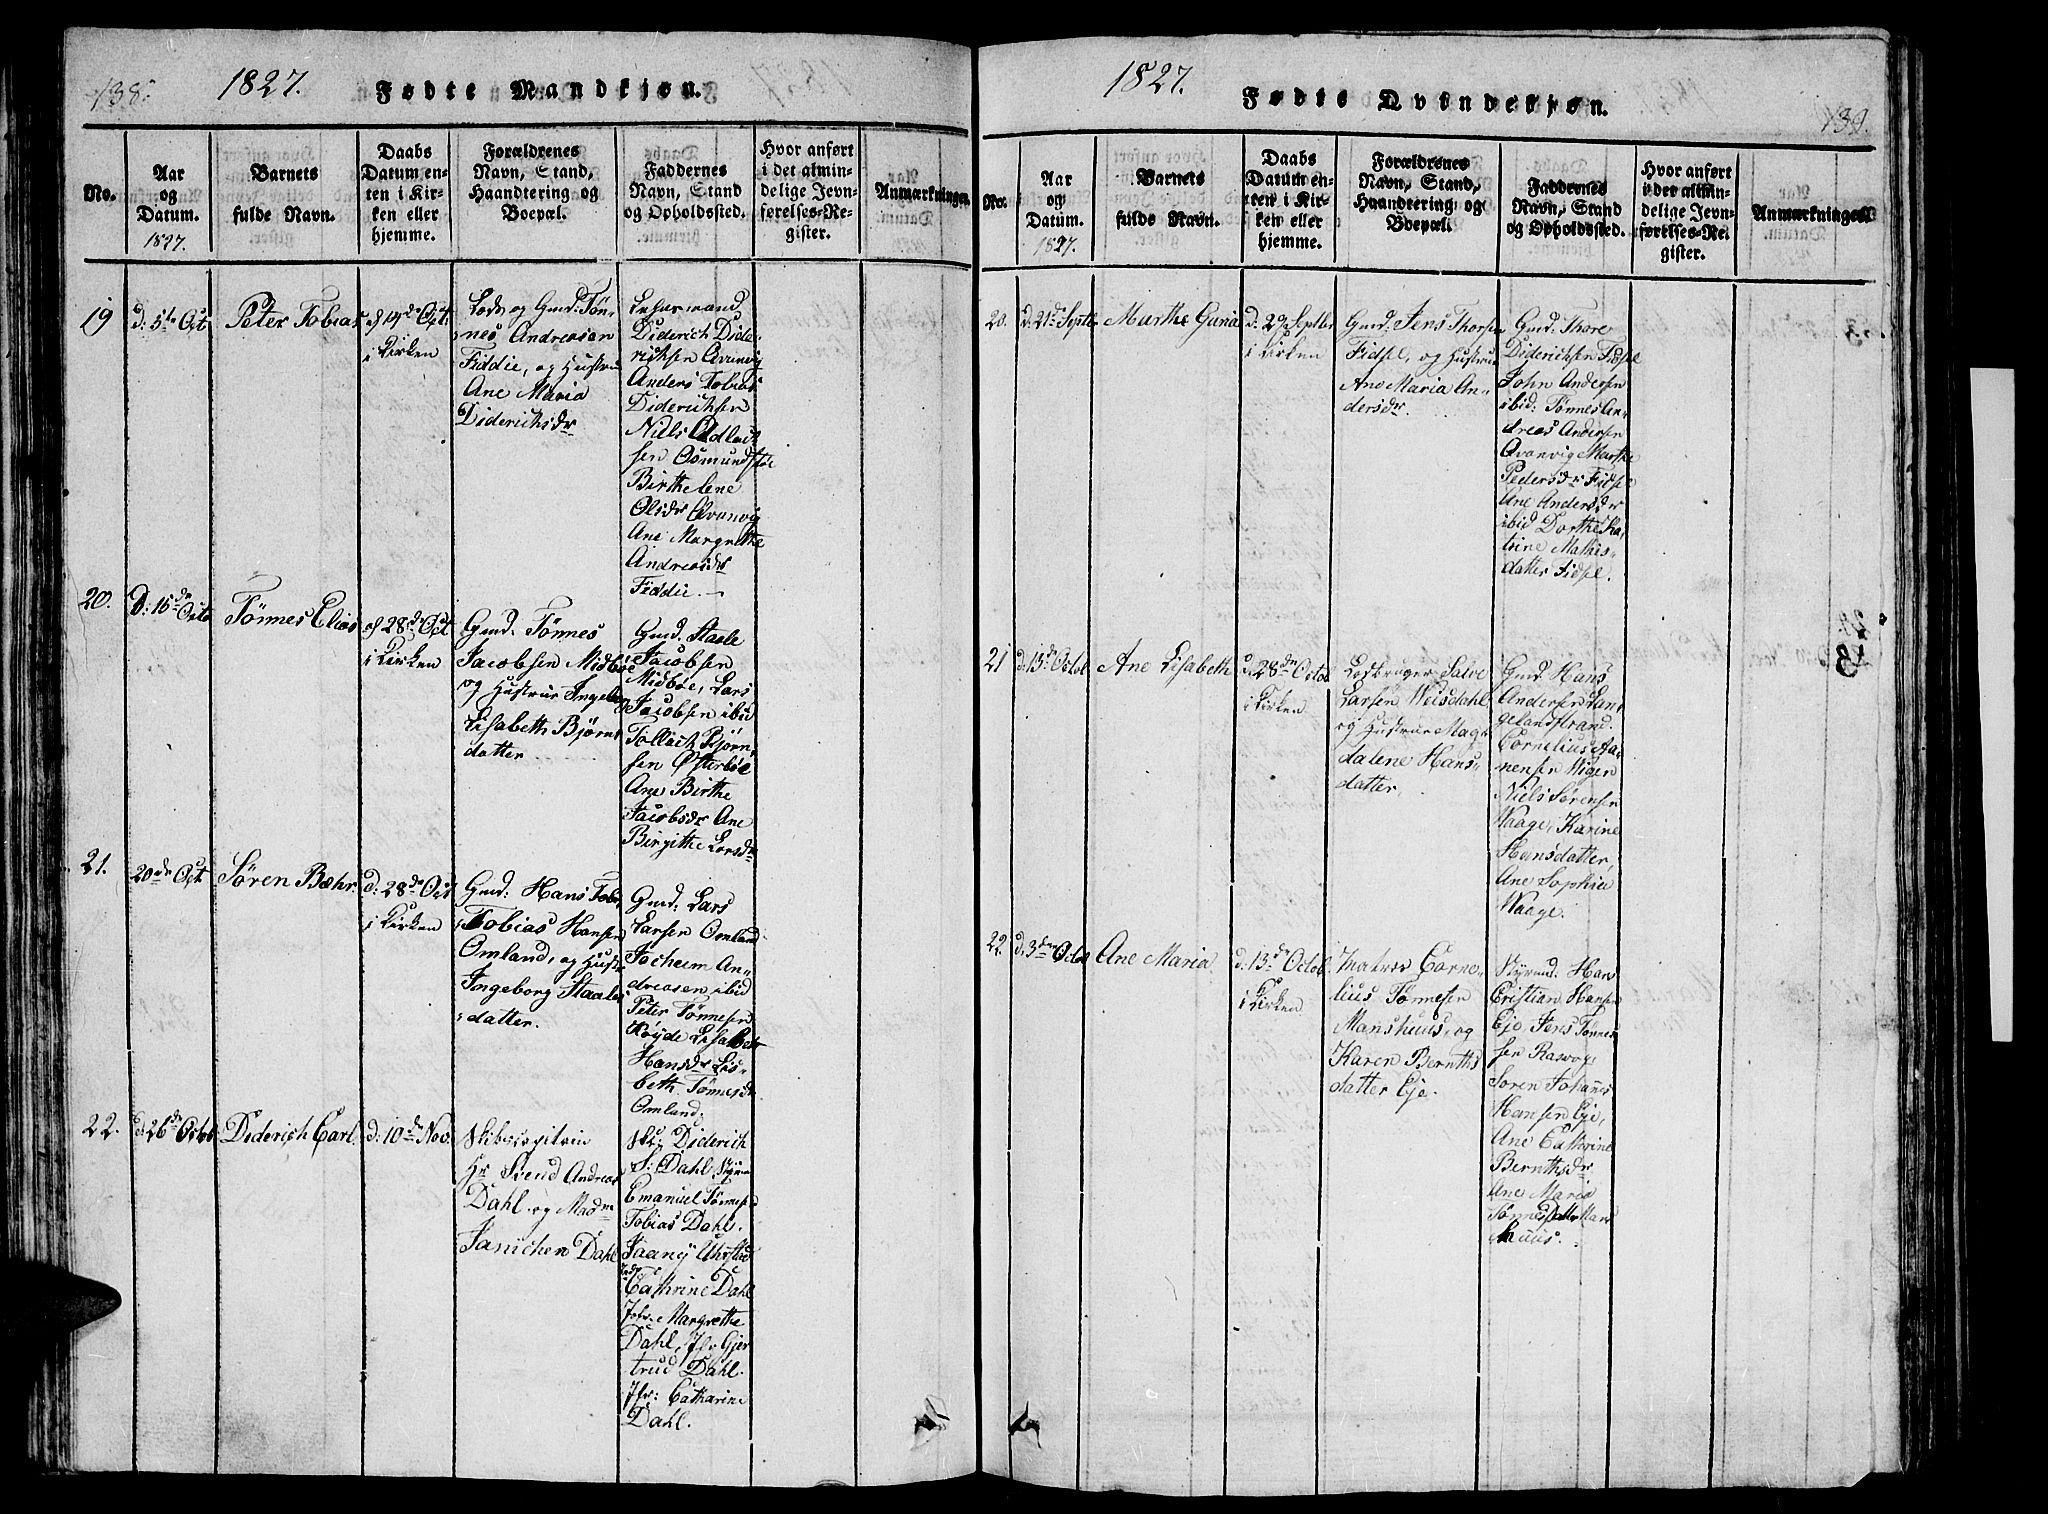 138.
1827.
Fødte Mandkjøn.
No.
Aar
og
Datum.
1827.
Barnets
fulde Navn.
Daabs
Datum en-
ten i Kir-
ken eller
hjemme.
Forældrenes
Navn, Stand,
Haandtering og
Boepæl.
Faddernes
Navn, Stand
og Opholdssted.
Hvor anført
i det almin-
delige Jevn-
førelses-Re-
gister.
Anmærkninger.
19
d: 5te Oct
Peter Tobias
d 19de Oct
i Kirken
Lods og Gmd: Tøn-
nes Andreasen
Fiddie, og Hustru
Ane Maria
Diderichsdr
Diderich Dide-
richsen Avanvig
Anders Tobias
Diderichsen
Niels Adlact
sen Osmundstøe
Birthe Lene
Olsdr Avanvig
Ane Margrethe
Andreasdr
Fiddie.
20.
D: 15de Octo
Tönnes Elias
d 28de Oct
i Kirken
Gmd: Tönnes
Jacobsen Midböe
og Hustrue Ingebor
Lisabeth Bjørns
datter
Gmd. Staale
Jacobsen
Midböe, Lars
Jacobsen ibid
Tollach Bjørn-
sen Østerböe
Ane Birthe
Jacobsdr Ane
Birgithe Larsdr
21.
20de Oct
Sören Bæhr.
d: 28de Oct
i Kirken
Gmd: Hans Tobi,
Tobias Hansen
Omland, og Hustr
Ingeborg Staales
datter.
Gmd: Lars
Larsen Omland
Jocheim An-
dreasen ibid
Peter Tönnesen
Röyde Lisabeth
Hansdr Lis-
beth Tönnesdr
Omland.
22.
d: 26de Octob
Diderich Carl.
d: 10de Nov.
Skibscapitain
Hr Svend Andreas
Dahl og Madme
Janichen Dahl
Sk: Diderich
S: Dahl
Emanuel Tönnesen
Tobias Dahl.
Cathrine Dahl
Jofr: Margrethe
Dahl, Jfr Gjer
trud Dahl.
Jfr: Catharine
Dahl.
1827.
Fødte Qvindekjøn.
139.
No.
Aar
og
Datum.
1827.
Barnets
fulde Navn.
Daabs
Datum en-
ten i Kir-
ken eller
hjemme.
Forældrenes
Navn, Stand,
Haandtering og
Boepæl.
Faddernes
Navn, Stand
og Opholdssted.
Hvor anført
i det almin-
delige Jevn-
førelses-Re-
gister.
Anmærkninger.
20.
d: 21de Septbr
Marthe Guria
d: 29 Septbr
i Kirken
Gmd: Jens Thorsen
Fidsel, og Hustrue
Ane Maria An-
dersdr.
Gmd: Thore
Diderichsen Fidsel
John Andersen
ibid: Tønnes An-
dreas Andersen
Avanvig Marthe
Pedersdr Fidsel
Ane Andersdr
ibid Dorthe Ka-
trine Mathis-
datter Fidsel.
21
d: 13de Octob
Ane Lisabeth
d: 28de Octob
i Kirken
Larsen Weisdahl
og Hustrue Mag-
dalene Hans-
datter.
Gmd: Hans
Andersen Lan-
gelandstrand
Cornelius Aa-
nensen Wigen
Niels Sørensen
Waage, Karine
Hansdatter,
Ane Sophia
Waage.
22.
d: 3den Octob
Ane Maria
d: 13de Octob.
i Kirken
Matros Corne-
lius Tønnesen
Manshuus, og
Karen Bernths
datter Eje.
Styrmd: Hans
Cristian Hansen
Eje Jens Tønnes
sen Rasvog
Soren Johannes
Hansen Eje,
Ane Cathrine
Bernthsdr
Ane Maria
Tønnesdatter Mans
huus.